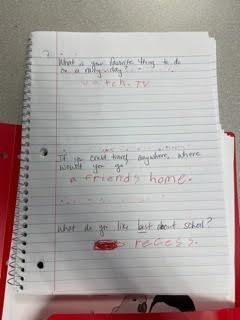 What is your favorite thing to do
on a rainy day?
watch. TV
If you could travel anywhere, where
would you go?
a friends home.
What do you like best about school?
recess.